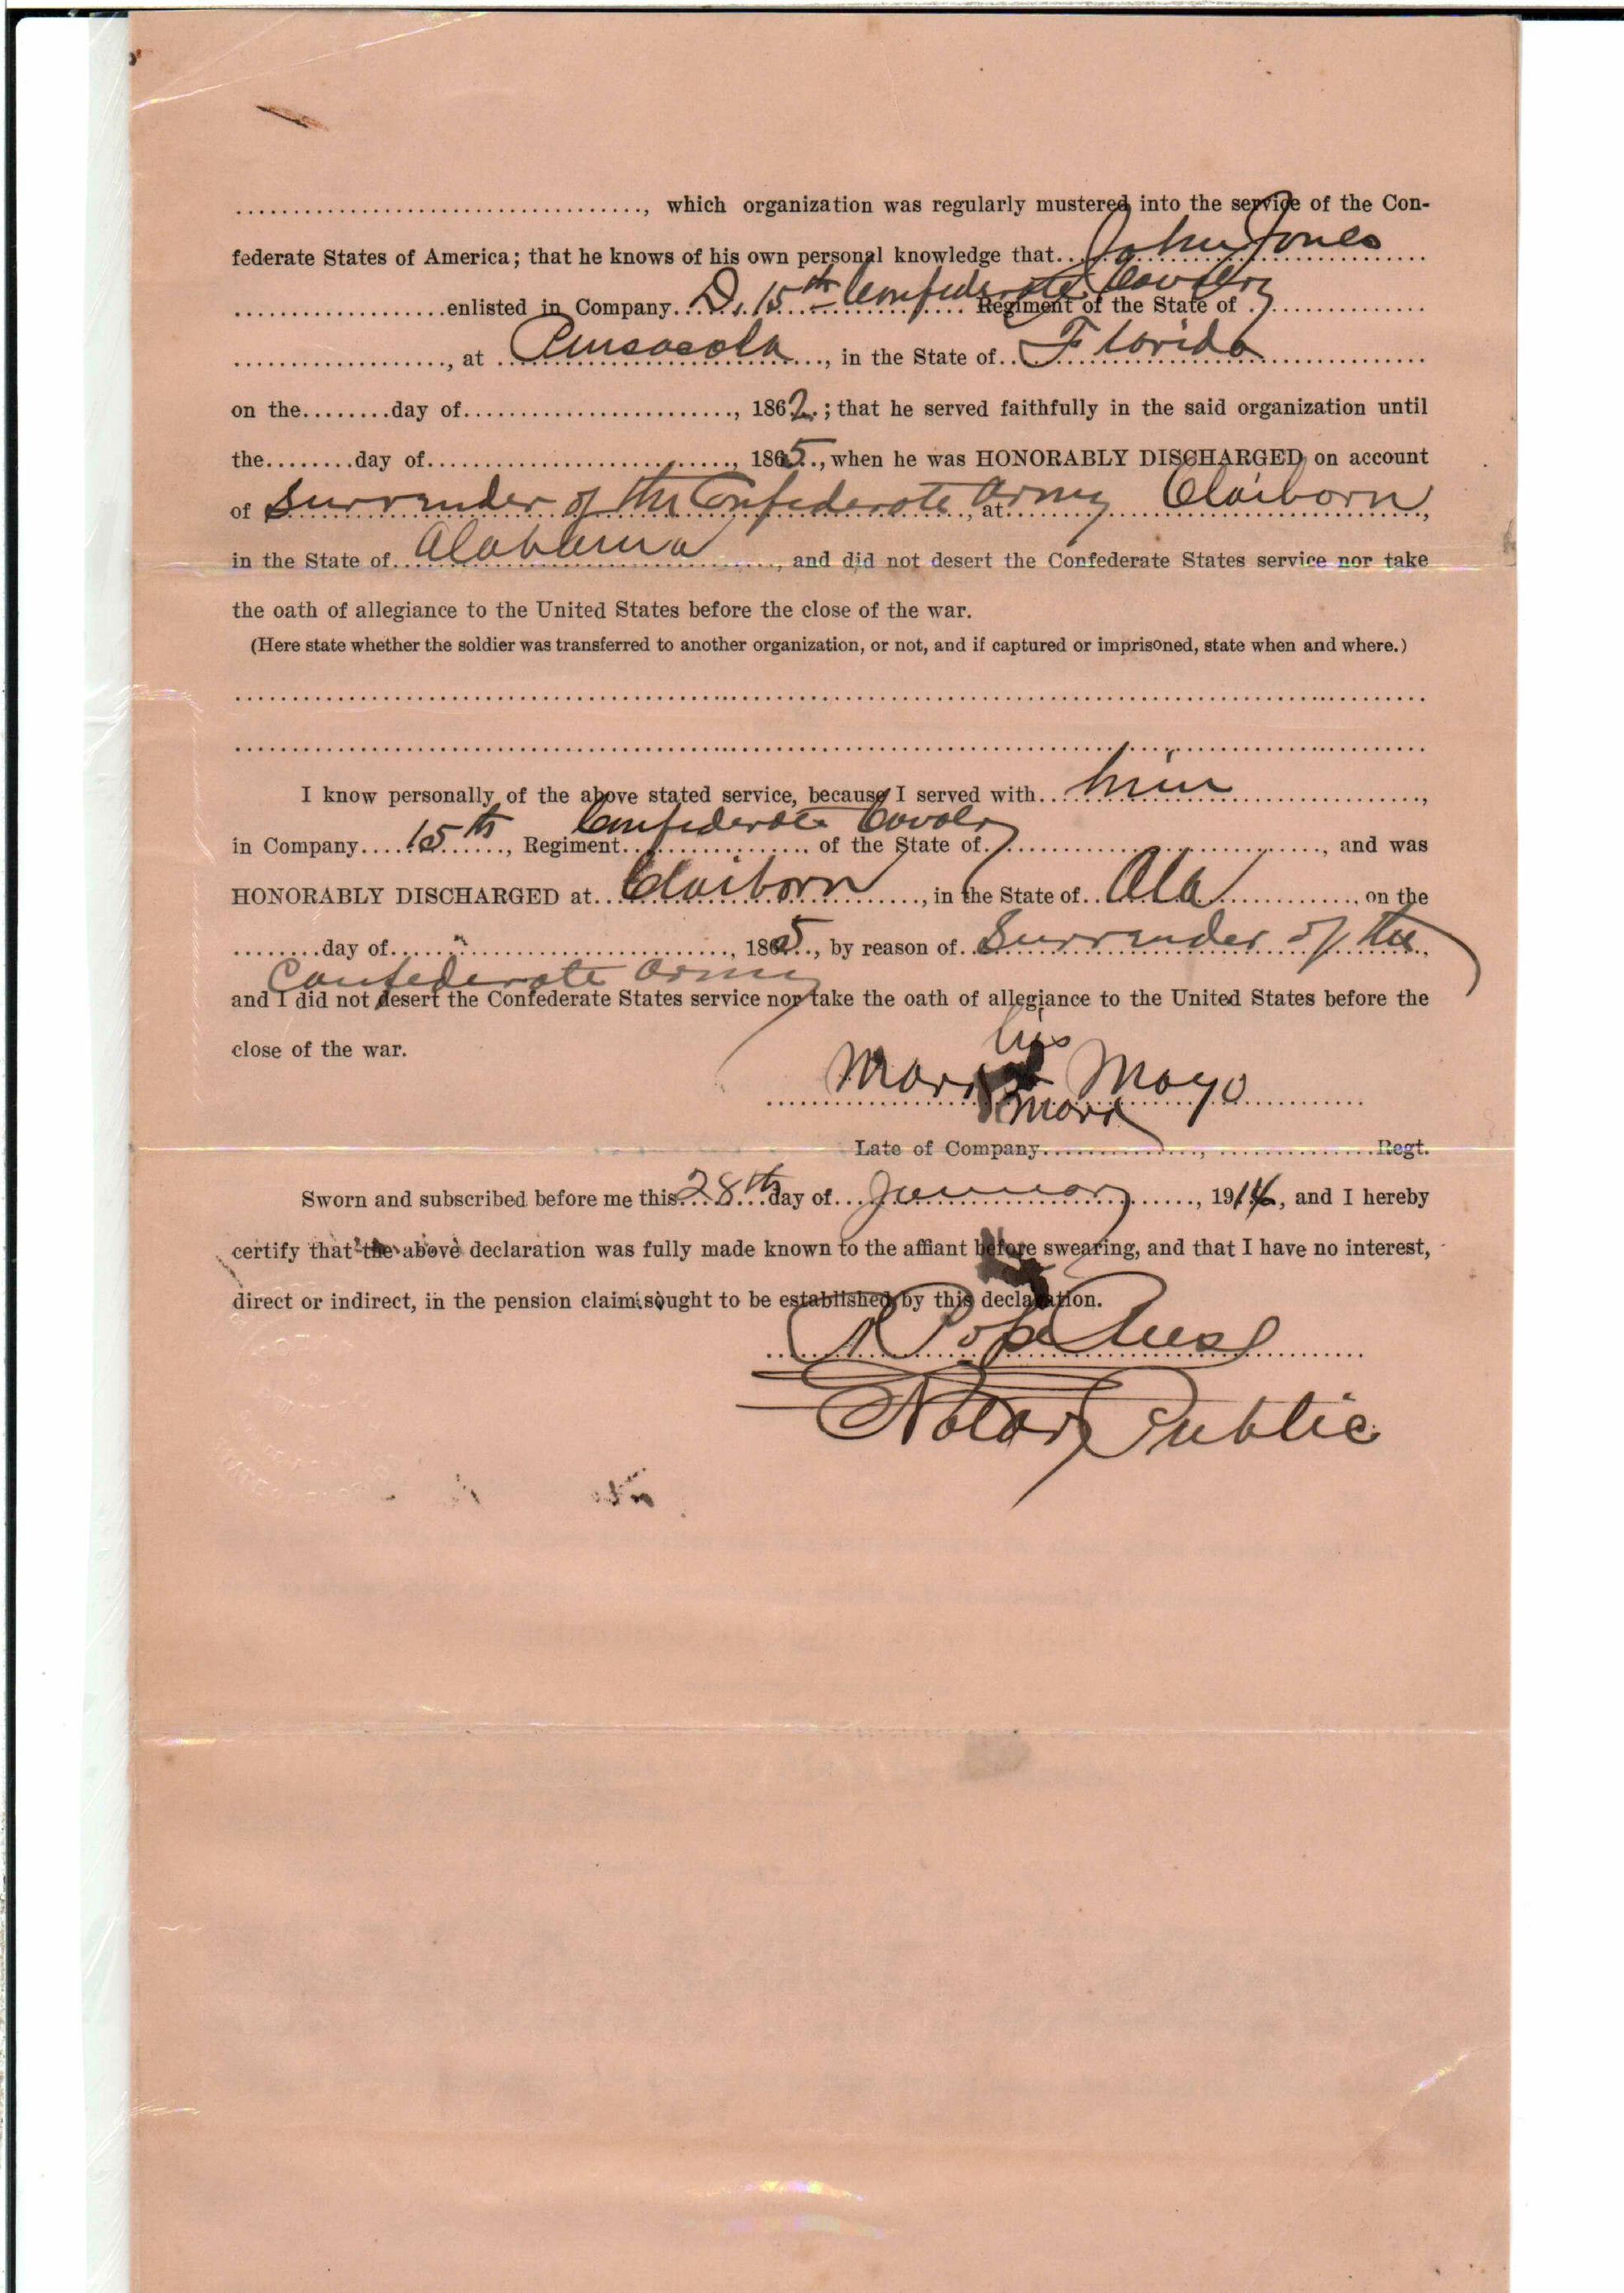 ........................................, which organization was regularly mustered into the service of the Con-
federate States of America; that he knows of his own personal knowledge that John Jones
....................enlisted in Company D. 15th Confederate Cavalry Regiment of the State of ....................
...................., at Pensacola, in the State of Florida
on the........day of........................, 1862; that he served faithfully in the said organization until
the........day of........................, 1865, when he was HONORABLY DISCHARGED on account
of Surrender of the Confederate Army, at Claiborn,
in the State of Alabama, and did not desert the Confederate States service nor take
the oath of allegiance to the United States before the close of the war.
(Here state whether the soldier was transferred to another organization, or not, and if captured or imprisoned, state when and where.)
I know personally of the above stated service, because I served with him,
in Company 15th, Regiment Confederate Cavalry of the State of...................., and was
HONORABLY DISCHARGED at Claiborn, in the State of Ala, on the
........day of........................, 1865, by reason of Surrender of the
Confederate Army
and I did not desert the Confederate States service nor take the oath of allegiance to the United States before the
close of the war.
his
Mayo
mark
Late of Company..............., ...............Regt.
Sworn and subscribed before me this 28th day of January, 1914, and I hereby
certify that the above declaration was fully made known to the affiant before swearing, and that I have no interest,
direct or indirect, in the pension claim sought to be established by this declaration.
R Pope
Notary Public